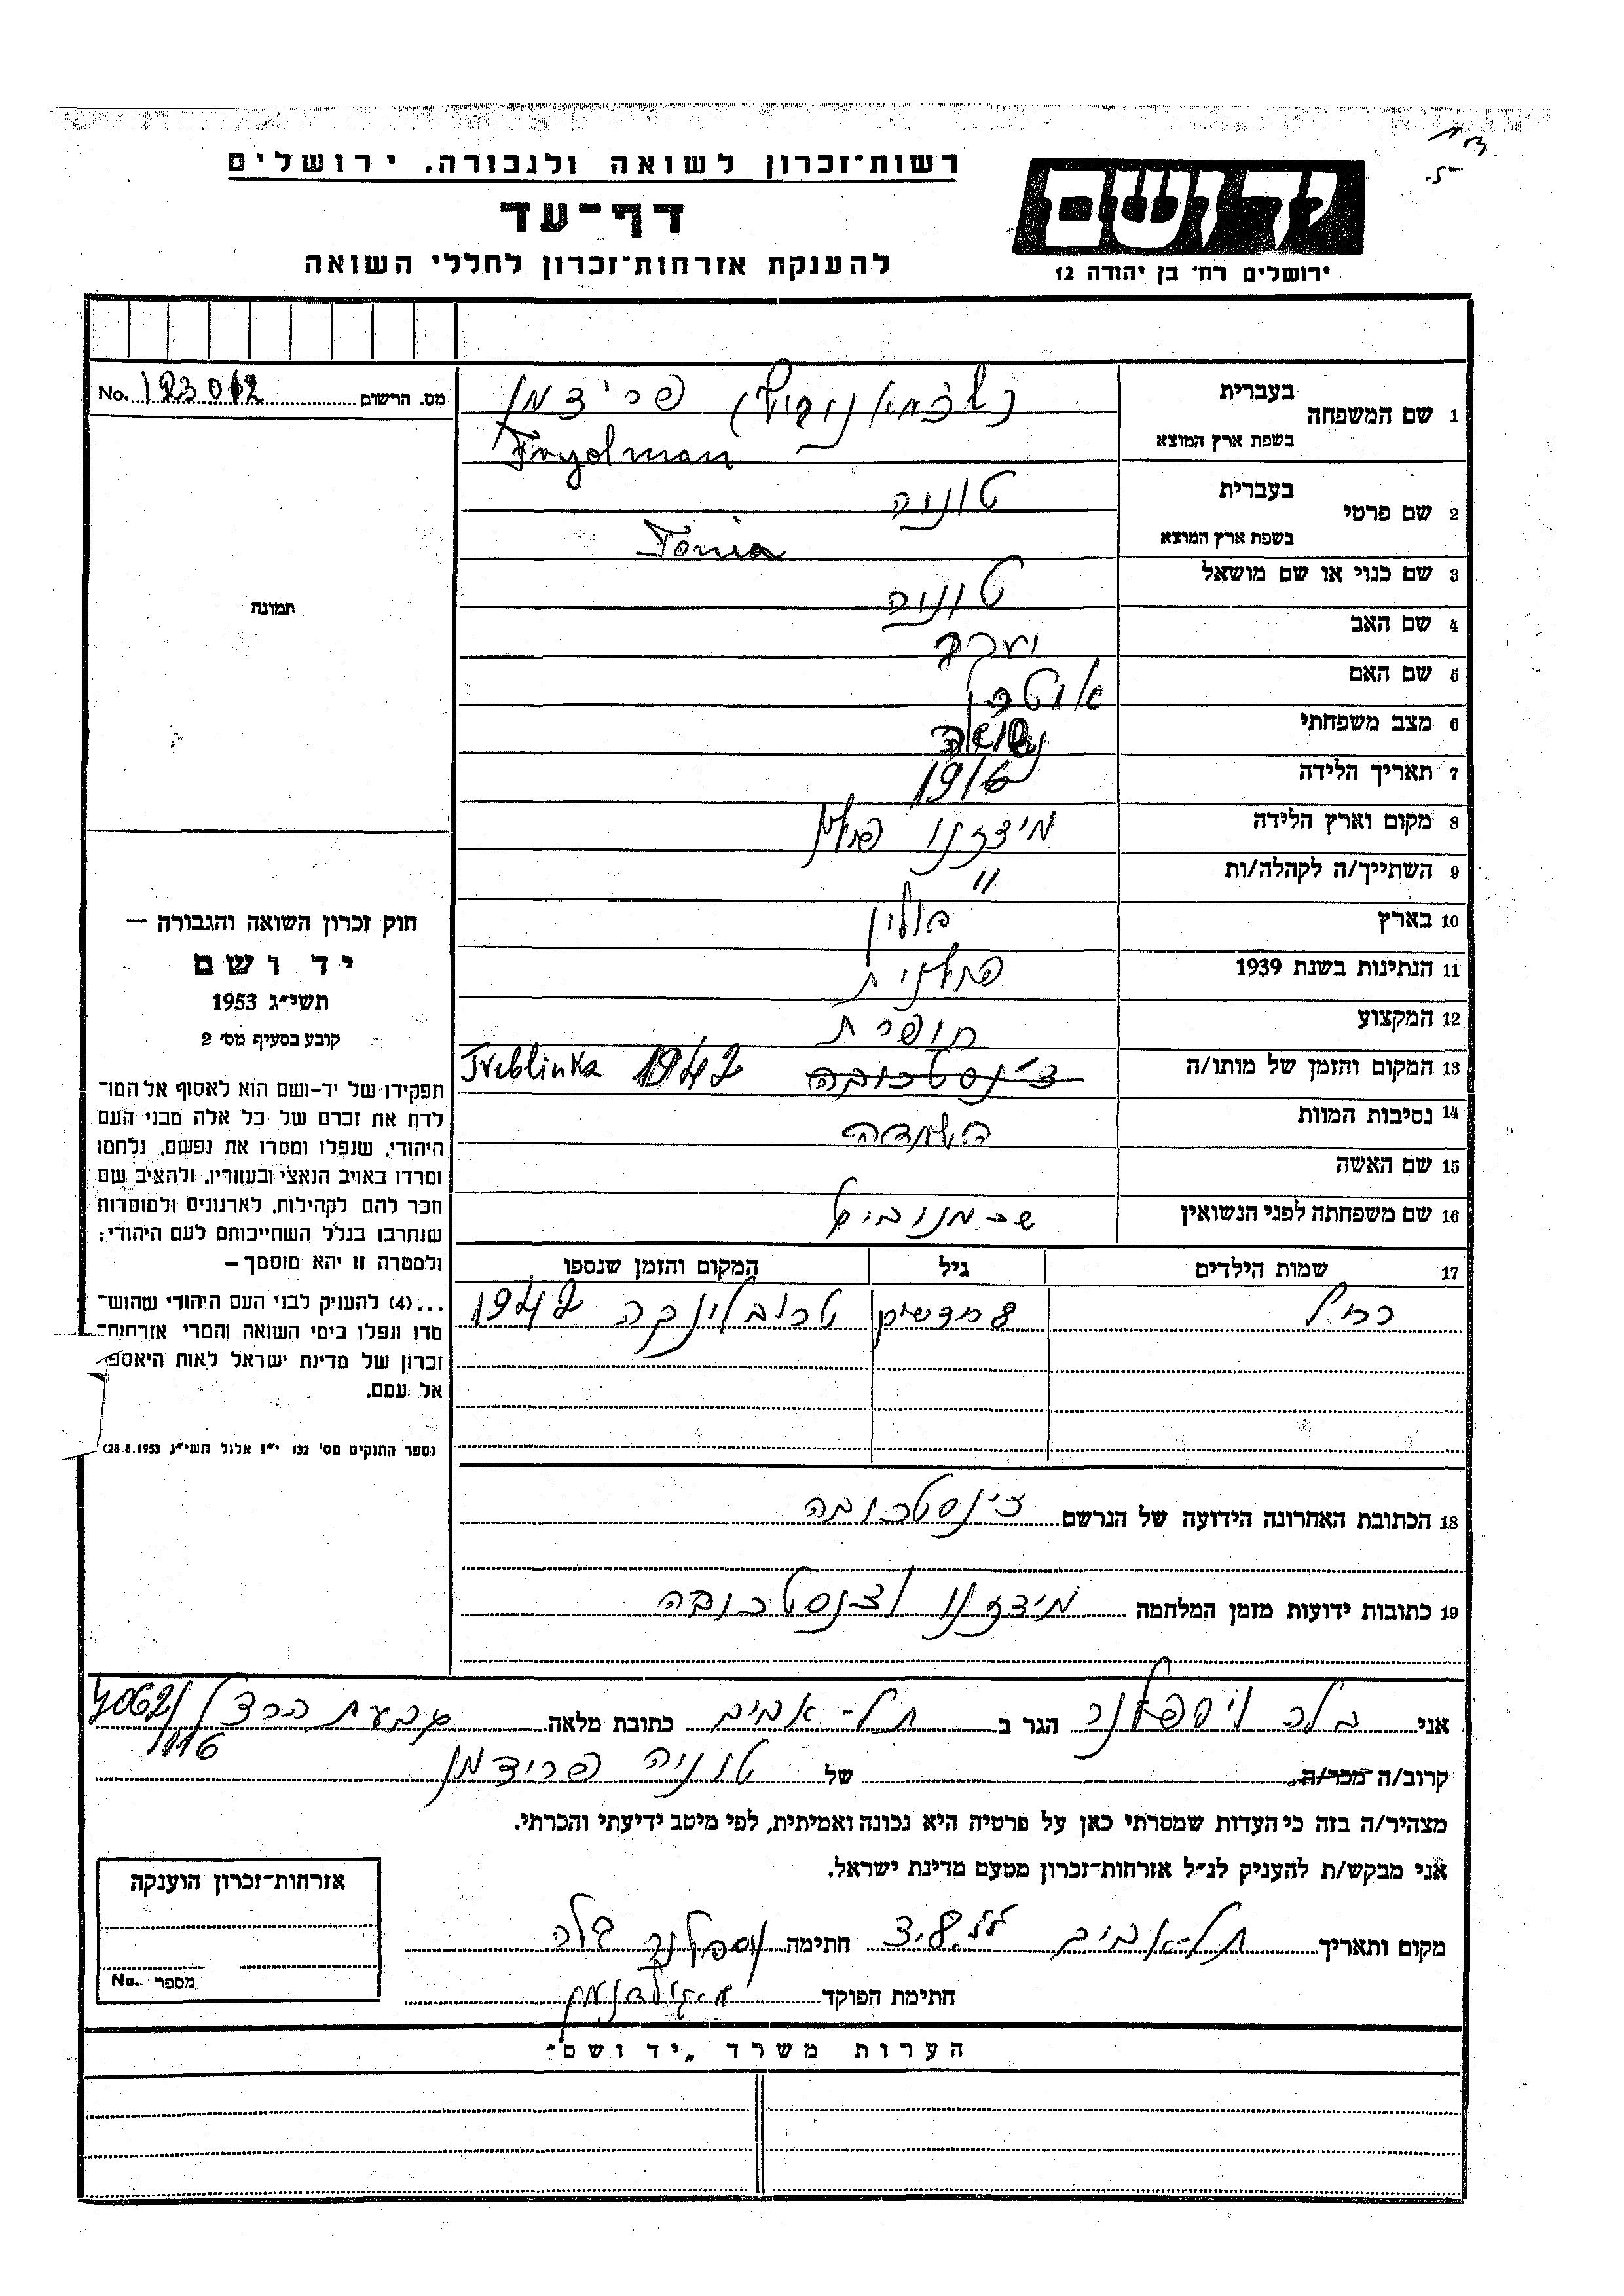 רשות־זכרון לשואה ולגבורה, ירושלים
דף־עד
להענקת אזרחות־זכרון לחללי השואה
יד ושם
ירושלים רח' בן יהודה 12
מס. הרשום No. 123012
1 שם המשפחה בעברית פרידמן
בשפת ארץ המוצא Frydman
2 שם פרטי בעברית טוניה
בשפת ארץ המוצא Tonia
3 שם כנוי או שם מושאל טוניה
4 שם האב יעקב
5 שם האם
6 מצב משפחתי נשואה
7 תאריך הלידה 1916
8 מקום וארץ הלידה פולין
9 השתייך/ה לקהלה/ות "
10 בארץ פולין
11 הנתינות בשנת 1939 פולנית
12 המקצוע תופרת
13 המקום והזמן של מותו/ה צ'נסטכובה 1942 Treblinka
14 נסיבות המוות השמדה
15 שם האשה
16 שם משפחתה לפני הנשואין
17 שמות הילדים גיל המקום והזמן שנספו
רחל 8 חדשים טרובלינקה 1942
18 הכתובת האחרונה הידועה של הנרשם צ'נסטכובה
19 כתובות ידועות מזמן המלחמה
תמונה
חוק זכרון השואה והגבורה —
יד ושם
תשי"ג 1953
קובע בסעיף מס' 2
תפקידו של יד-ושם הוא לאסוף אל המו־
לדת את זכרם של כל אלה מבני העם
היהודי, שנפלו ומסרו את נפשם, נלחמו
ומרדו באויב הנאצי ובעוזריו, ולהציב שם
וזכר להם לקהילות, לארגונים ולמוסדות
שנחרבו בגלל השתייכותם לעם היהודי;
ולמטרה זו יהא מוסמך —
...(4) להעניק לבני העם היהודי שהוש־
מדו ונפלו בימי השואה והמרי אזרחות־
זכרון של מדינת ישראל לאות היאספם
אל עמם.
(ספר החוקים מס' 132 י"ז אלול תשי"ג 28.8.1953)
אני בלה הגר ב תל-אביב כתובת מלאה גבעת הרצל
116
קרוב/ה מכר/ה של טוניה פרידמן
מצהיר/ה בזה כי העדות שמסרתי כאן על פרטיה היא נכונה ואמיתית, לפי מיטב ידיעתי והכרתי.
אני מבקש/ת להעניק לנ"ל אזרחות־זכרון מטעם מדינת ישראל.
מקום ותאריך תל-אביב חתימה בלה
חתימת הפוקד
אזרחות־זכרון הוענקה
מספר No.
הערות משרד „יד ושם"